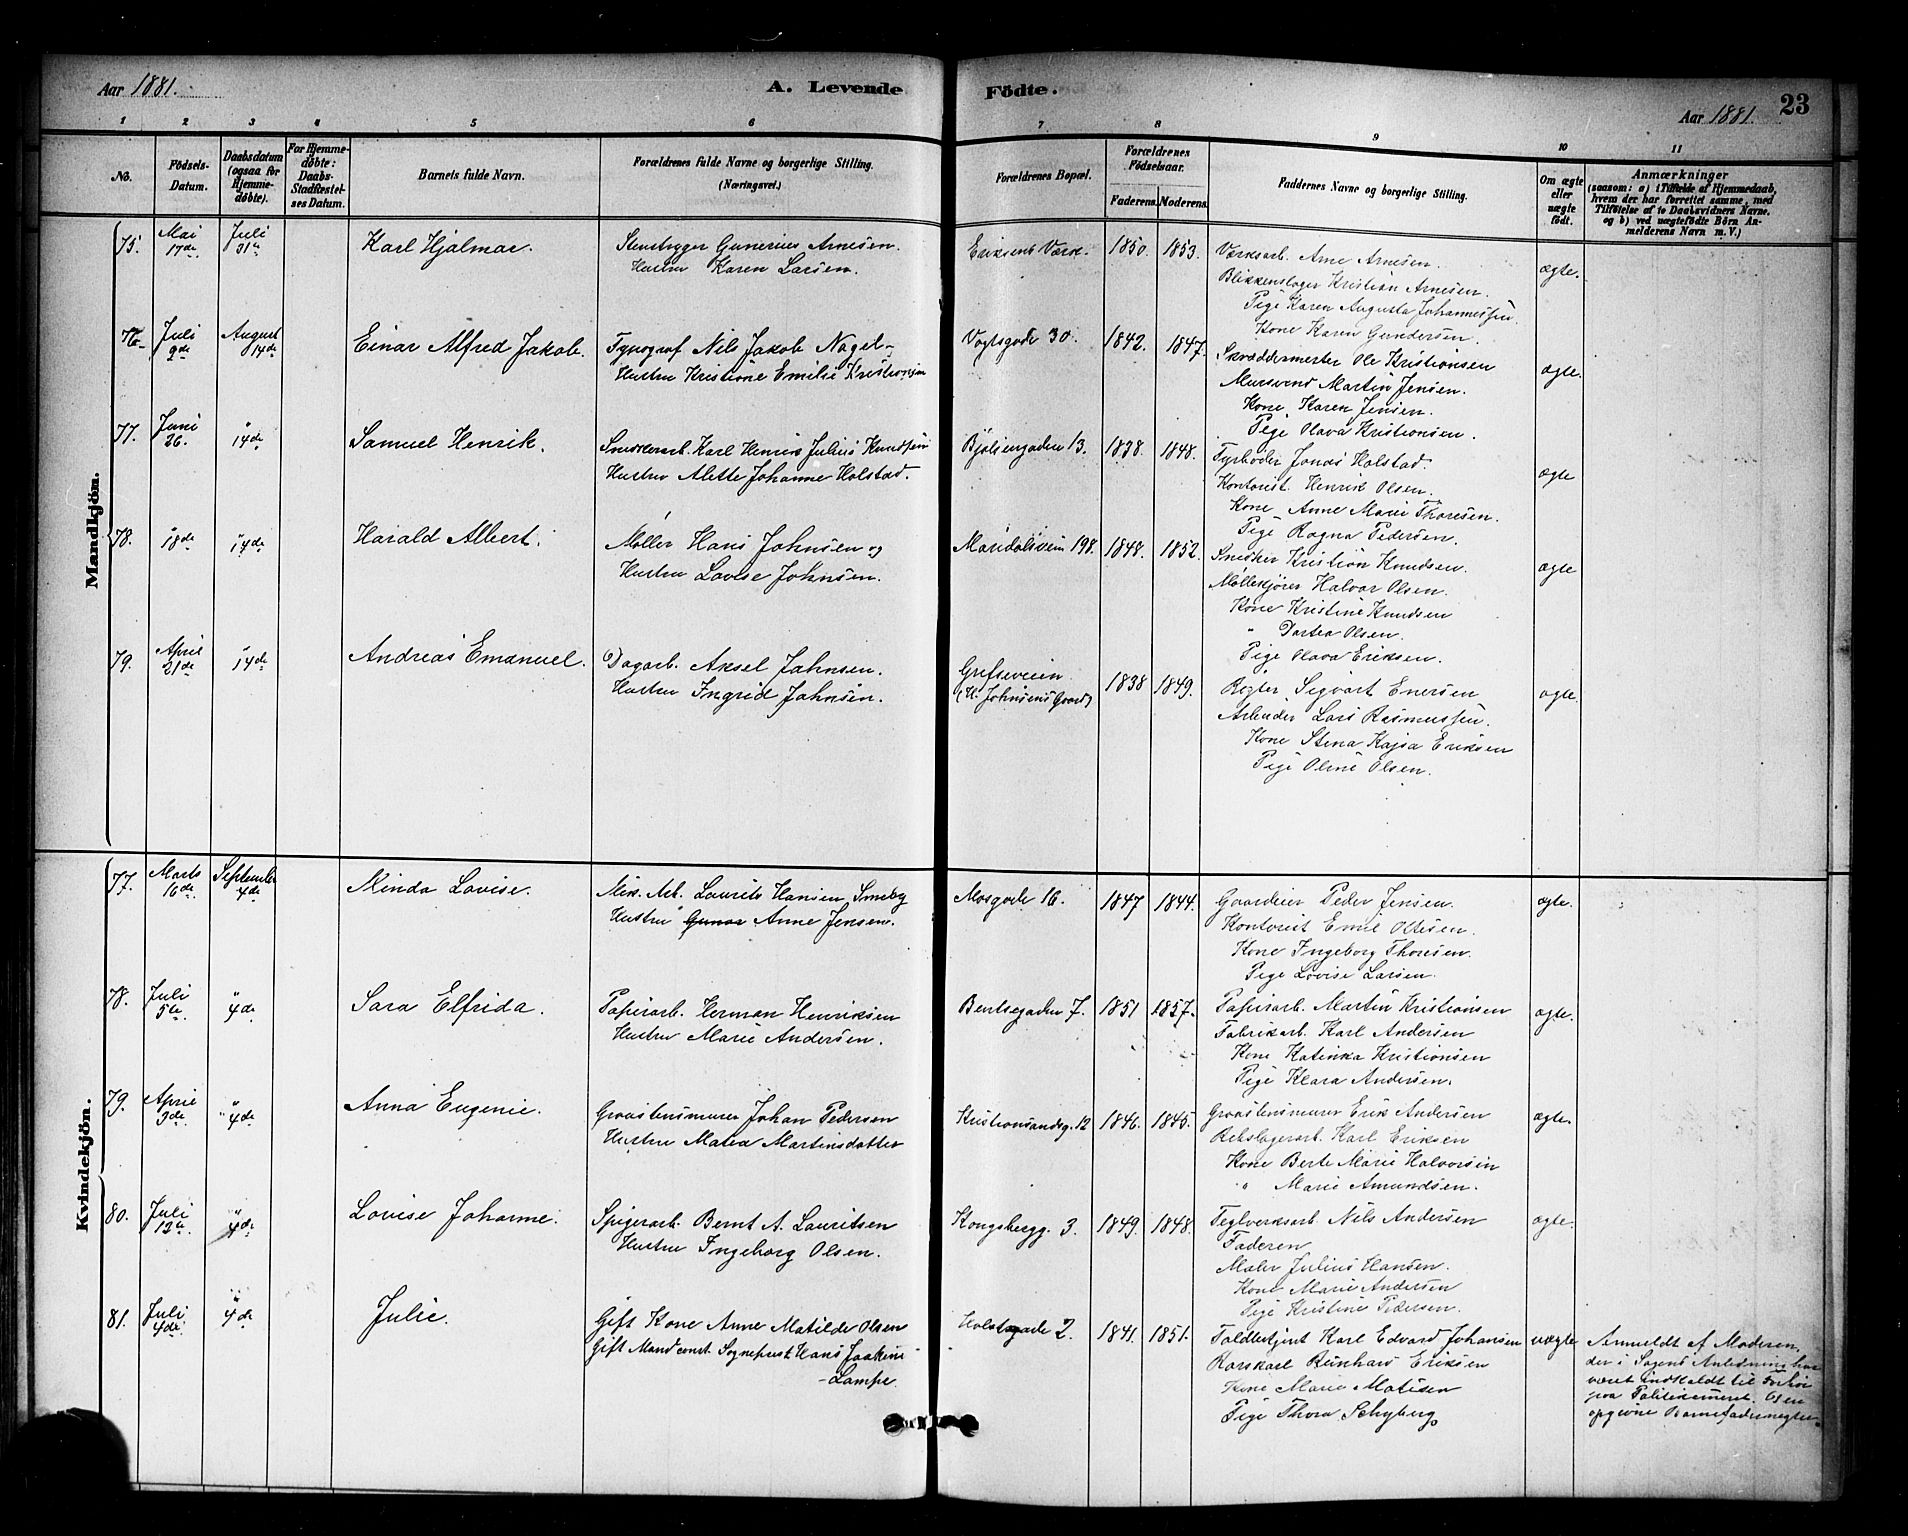 Aar 1881.
A. Levende Födte.
Aar 1881. 23
1 2 3 4 5 6 7 8 9 10 11
No.
Födsels-Datum.
Daabsdatum (ogsaa for Hjemme-døbte).
For Hjemme-døbte: Daabs-Stadfæstel-ses Datum.
Barnets fulde Navn.
Forældrenes fulde Navne og borgerlige Stilling. (Næringsvei.)
Forældrenes Bopæl.
Forældrenes Födselsaar.
Faderens. Moderens.
Faddernes Navne og borgerlige Stilling.
Om ægte eller uægte födt.
Anmærkninger (saasom: a) i Tilfælde af Hjemmedaab, hvem der har forrettet samme, med Tilföielse af to Daabsvidners Navne, og b) ved uægtefödte Börn An-melderens Navn m. V.)
Mandkjön.
75. Mai 17de Juli 31te Karl Hjalmar. Stenhygger Gunerius Arnesen. Eriksens Værk. 1850. 1853. Værksarb. Arne Arnesen. ægte.
Hustru Karen Larsen. Blikkenslager Kristian Arnesen.
Pige Karen Augusta Johannessen.
Kone Karen Gundersen.
76. Juli 9de August 14de Einar Alfred Jakob. Typograf Nils Jakob Nagel Vogtsgade 30. 1842. 1847. Skræddermester Ole Kristiansen ægte.
Hustru Kristiane Emilie Kristiansen Mursvend Martin Jensen.
Kone Karen Jensen.
Pige Olava Kristiansen.
77. Juni 26. " 14de Samuel Henrik. Snedkerarb. Karl Henrik Julius Knudsen Bjølsengaden 13. 1838. 1848. Fyrbøder Jonas Holstad. ægte
Hustru Alette Johanne Holstad. Kontorist Henrik Olsen.
Kone Anne Marie Thoresen.
Pige Ragna Pedersen.
78. " 18de " 14de Harald Albert. Møller Hans Johnsen og Maridalsveien 198. 1848. 1852. Snedker Kristian Knudsen. ægte
Hustru Lovise Johnsen. Møllekjører Halvor Olsen.
Kone Kristine Knudsen
" Dortea Olsen.
Pige Olava Eriksen.
79. April 21de " 14de Andreas Emanuel. Dagarb. Aksel Johnsen. Grefseveien (H. Johnsens Gaard) 1838 1849. Røgter Sigvart Enersen ægte
Hustru Ingrid Johnsen. Arbeider Lars Rasmussen.
Kone Stena Kajsa Eriksen
Pige Oline Olsen.
Kvindekjön.
77. Marts 16de September 4de Minda Lovise. Mek. Arb. Laurits Hansen Smeby Mosgade 16. 1847 1844. Gaardeier Peder Jensen. ægte.
Hustru Gunar Anne Jensen. Kontorist Emil Ottesen.
Kone Ingeborg Thoresen.
Pige Lovise Larsen.
78. Juli 5te " 4de Sara Elfrida. Papirarb. Herman Henriksen Bentsegaden 7. 1851 1857. Papirarb. Martin Kristiansen ægte.
Hustru Marie Andersen. Fabrikarb. Karl Andersen
Kone Katinka Kristiansen
Pige Klara Andersen.
79. April 3de " 4de Anna Eugenie. Graastensmurer Johan Pedersen Kristiansandsg. 12 1846. 1845. Graastensmurer Erik Andersen ægte.
Hustru Matea Martinsdatter Rebslagerarb. Karl Eriksen
Kone Berte Marie Halvorsen
" Marie Amundsen.
80. Juli 12te " 4de Lovise Johanne. Spigerarb. Bernt A. Lauritsen Kongsbergg. 3. 1849. 1848. Teglverksarb. Nils Andersen ægte.
Hustru Ingeborg Olsen. Faderen
Maler Julius Hansen.
Kone Marie Andersen
Pige Kristine Pedersen.
81. Juli 4de " 4de Julie. Gift Kone Anne Matilde Olsen Holstsgade 2. 1841. 1851. Toldbetjent Karl Edvard Johansen uægte Anmeldt af Moderen,
Gift Mand const. Sognepræst Hans Joakim Lampe Karskarl Reinhard Eriksen der i Sagens Anledning har
Kone Marie Matisen været indkaldt til Forhør
Pige Thora Schyberg paa Politikameret. Den
opgivne Barnefader negter.